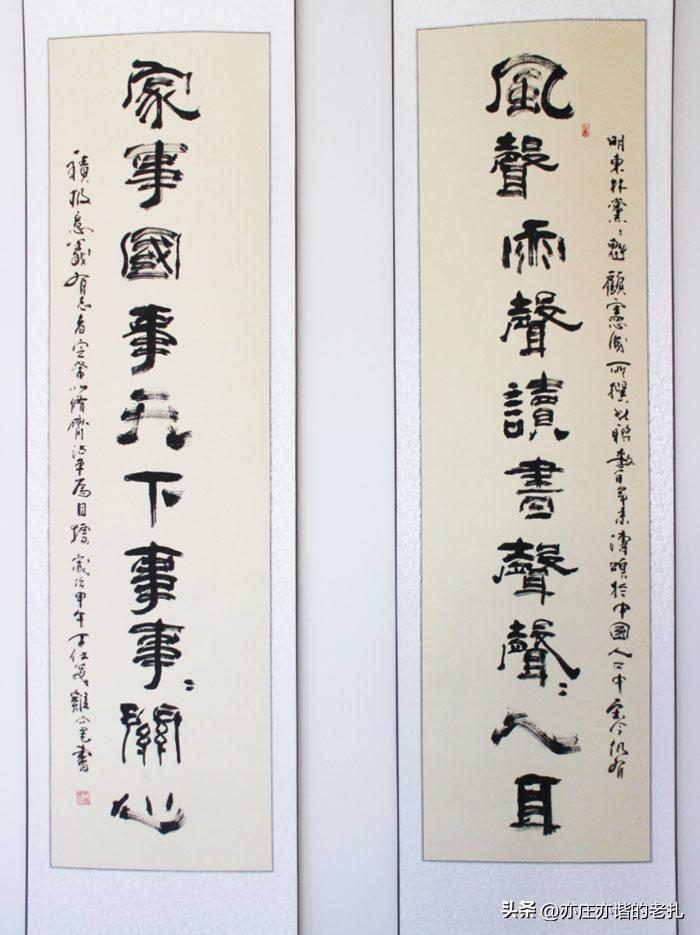 明東林黨〻魁顧憲成所撰此聯數百年來頌於中國人口中至今仍有
風聲雨聲讀書聲聲〻入耳
家事國事天下事事〻關心
積極意義有志者定當以修齊治平為目標歲次甲午丁仕美書
头条 @亦庄亦谐的老扎